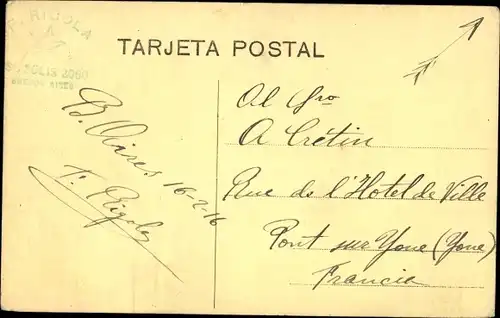 RIGOLA
SOLIS 2060
BUENOS AIRES
TARJETA POSTAL
B. Aires 16-2-16
F. Rigola
Al Sro
A Crétin
Rue de l'Hotel de Ville
Pont sur Yone (Yone)
Francia